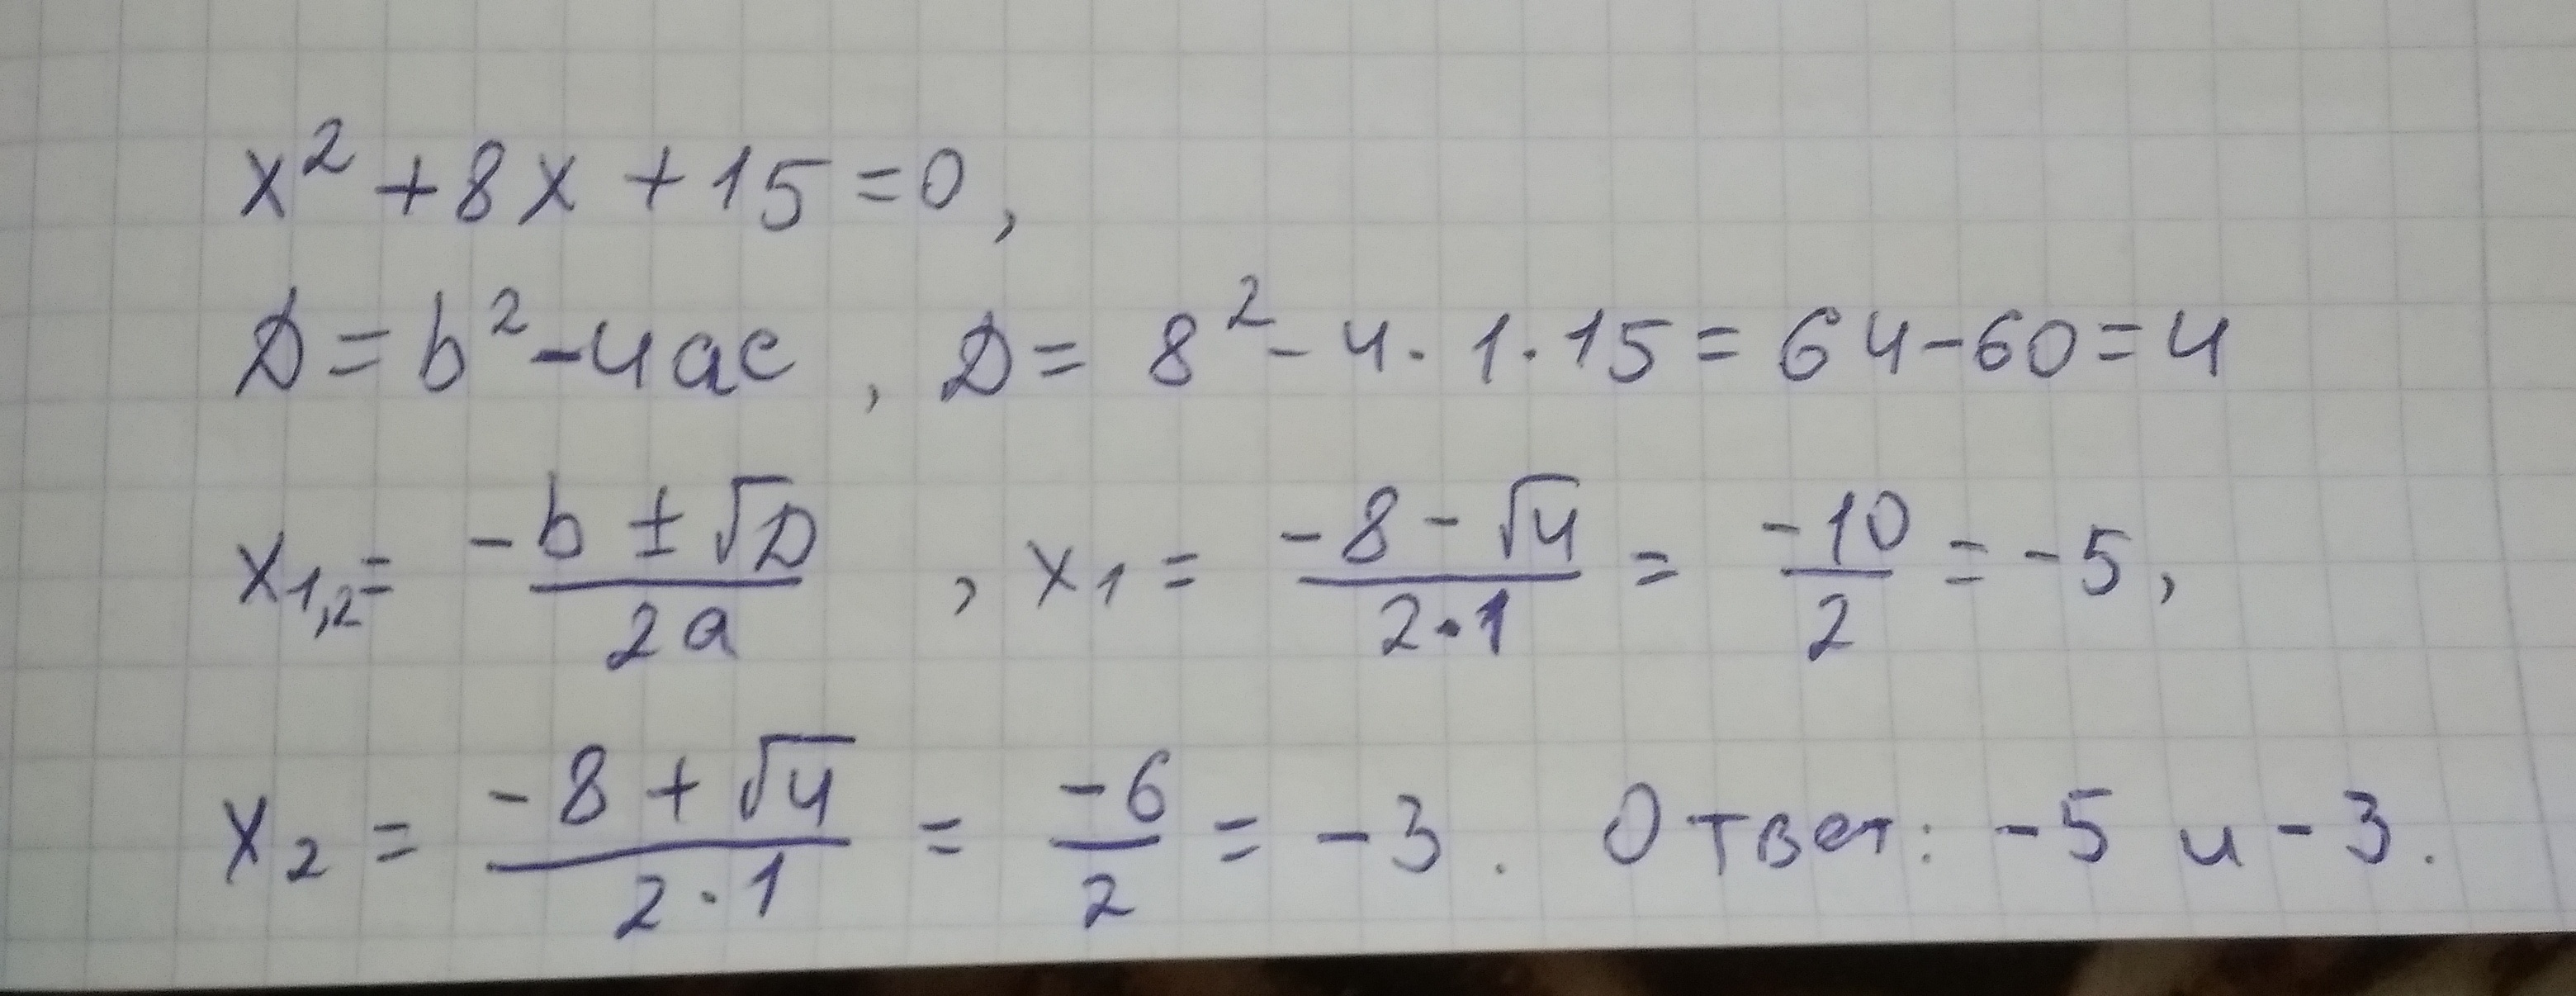 x² + 8x + 15 = 0,
D = b² - 4ac, D = 8² - 4 · 1 · 15 = 64 - 60 = 4
x₁,₂ = (-b ± √D) / (2a), x₁ = (-8 - √4) / (2·1) = -10 / 2 = -5,
x₂ = (-8 + √4) / (2·1) = -6 / 2 = -3. Ответ: -5 и -3.